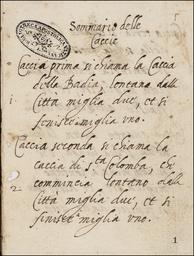 Sommario delle
Caccie
Caccia prima si chiama la Caccia
della Badia, lontana dalla
1 Città miglia due, et si
finisce miglia uno.
Caccia seconda si chiama la
caccia di s.ta Colomba, che
2 commincia lontano dalla
Città miglia due, et si
finisce miglia uno.
1